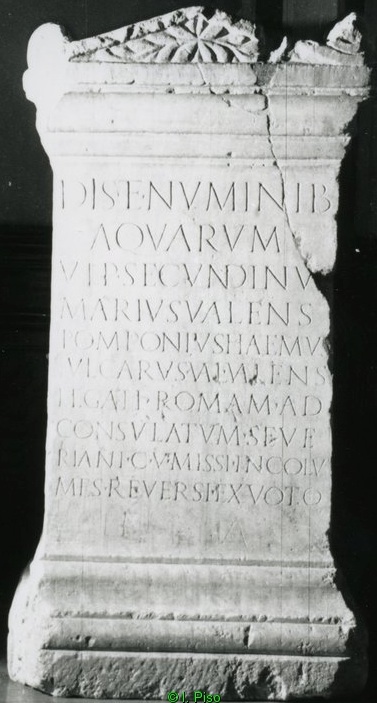 DIS·ET·NVMINIB
AQVARVM
VLP·SECVNDINVS
MARIVS VALENS
POMPONIVS HAEMVS
IVL CARVS·VAL·VALENS
LEGATI·ROMAM·AD
CONSVLATVM·SEVE
RIANI·C·V·MISSI·INCOLV
MES·REVERSI·EX VOTO
E A
© I. Piso